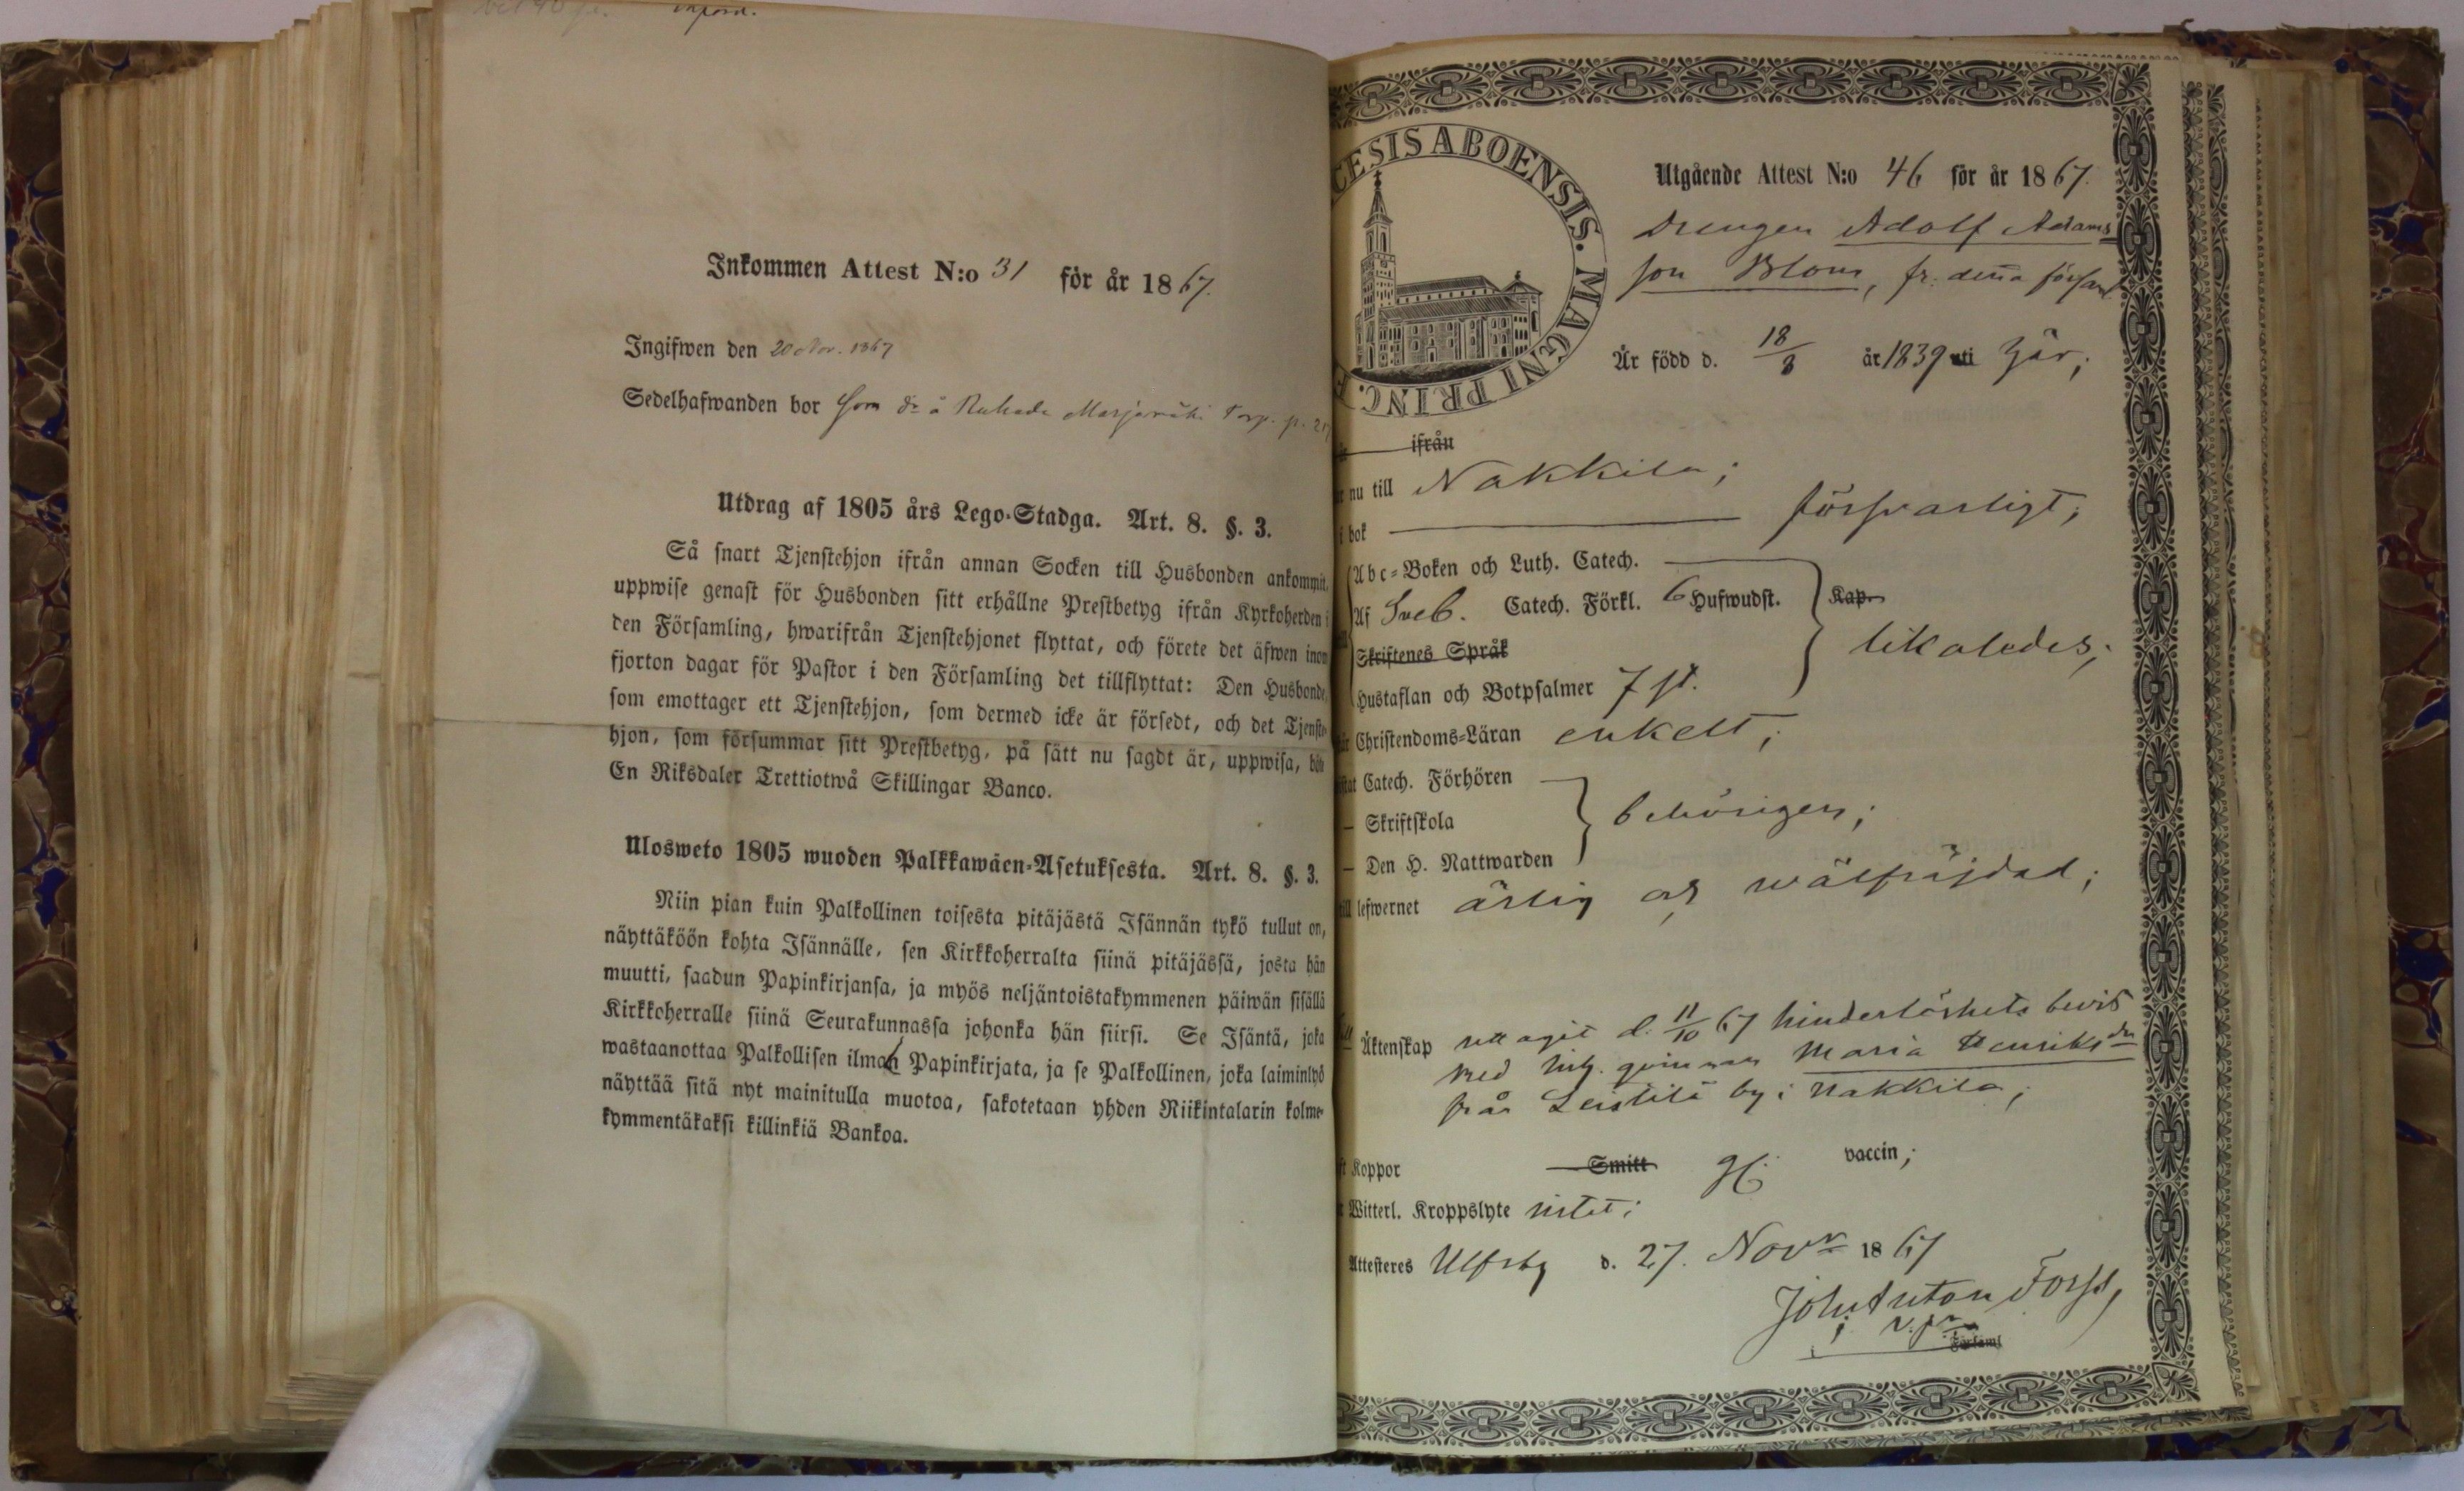 införd.
Inkommen Attest N:o 31 för år 1867.
Ingifwen den 20 Nov. 1867
Sedelhafwanden bor Som dr å Torp. p.
Utdrag af 1805 års Lego-Stadga. Art. 8. §. 3.
Så snart Tjenstehjon ifrån annan Socken till Husbonden ankommit,
uppwise genast för Husbonden sitt erhållne Prestbetyg ifrån Kyrkoherden i
den Församling, hwarifrån Tjenstehjonet flyttat, och förete det äfwen inom
fjorton dagar för Pastor i den Församling det tillflyttat: Den Husbonde,
som emottager ett Tjenstehjon, som dermed icke är försedt, och det Tjenste-
hjon, som försummar sitt Prestbetyg, på sätt nu sagdt är, uppwisa, böte
En Riksdaler Trettiotwå Skillingar Banco.
Ulosweto 1805 wuoden Palkkawäen-Asetuksesta. Art. 8. §. 3.
Niin pian kuin Palkollinen toisesta pitäjästä Isännän tykö tullut on,
näyttäköön kohta Isännälle, sen Kirkkoherralta siinä pitäjässä, josta hän
muutti, saadun Papinkirjansa, ja myös neljäntoistakymmenen päiwän sisällä
Kirkkoherralle siinä Seurakunnassa johonka hän siirsi. Se Isäntä, joka
wastaanottaa Palkollisen ilman Papinkirjata, ja se Palkollinen, joka laiminlyö
näyttää sitä nyt mainitulla muotoa, sakotetaan yhden Riikintalarin kolme-
kymmentäkaksi killinkiä Bankoa.
CESIS ABOENSIS. MAGNI PRINC. F
Utgående Attest N:o 46 för år 1867.
Drengen Adolf Adams
son Blom, fr. denna församl.
Är född d. 18/8 år 1839 uti här;
ifrån
nu till Nakkila;
i bok försvarligt;
Abc-Boken och Luth. Catech.
Af Sveb. Catech. Förkl. 6 Hufwudst. Kap.
Skriftenes Språk likaledes;
Hustaflan och Botpsalmer 7 st.
Christendoms-Läran enkelt;
Catech. Förhören
– Skriftskola behörigen;
– Den H. Nattwarden
till lefwernet ärlig och wälfräjdad;
Äktenskap uttagit d. 11/10 67 hinderlöshets bevis
med qvinnan Maria Henriksdr
från Leistilä by i Nakkila;
Koppor Smitt vaccin;
Witterl. Kroppslyte intet;
Attesteres Ulfsby d. 27. Novr 1867
Joh. Anton Forss,
v. p.
Församl